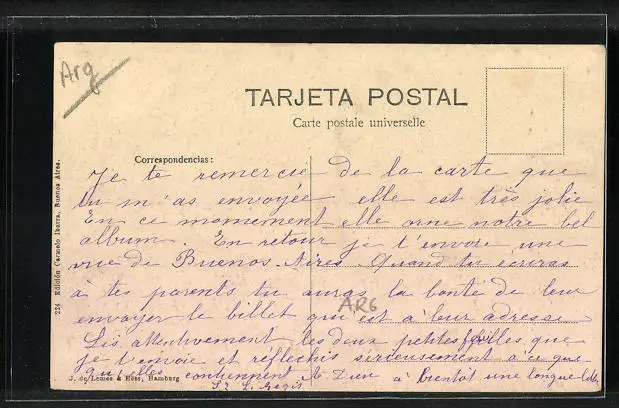 Arg
TARJETA POSTAL
Carte postale universelle
Correspondencias:
Je te remercie de la carte que
tu m'as envoyée elle est très jolie
En ce momement elle orne notre bel
album. En retour je t'envoie une
vue de Buenos-Aires Quand tu écriras
à tes parents tu auras la bonté de leur
envoyer le billet qui est à leur adresse
ARG
Lis attentivement les deux petites feuilles que
je t'envoie et réflechis sérieusement à ce que
qu'elles contiennent A Dieu à bientôt une longue
224 Edición Carmelo Ibarra, Buenos Aires.
J. de Lemos & Hess, Hamburg